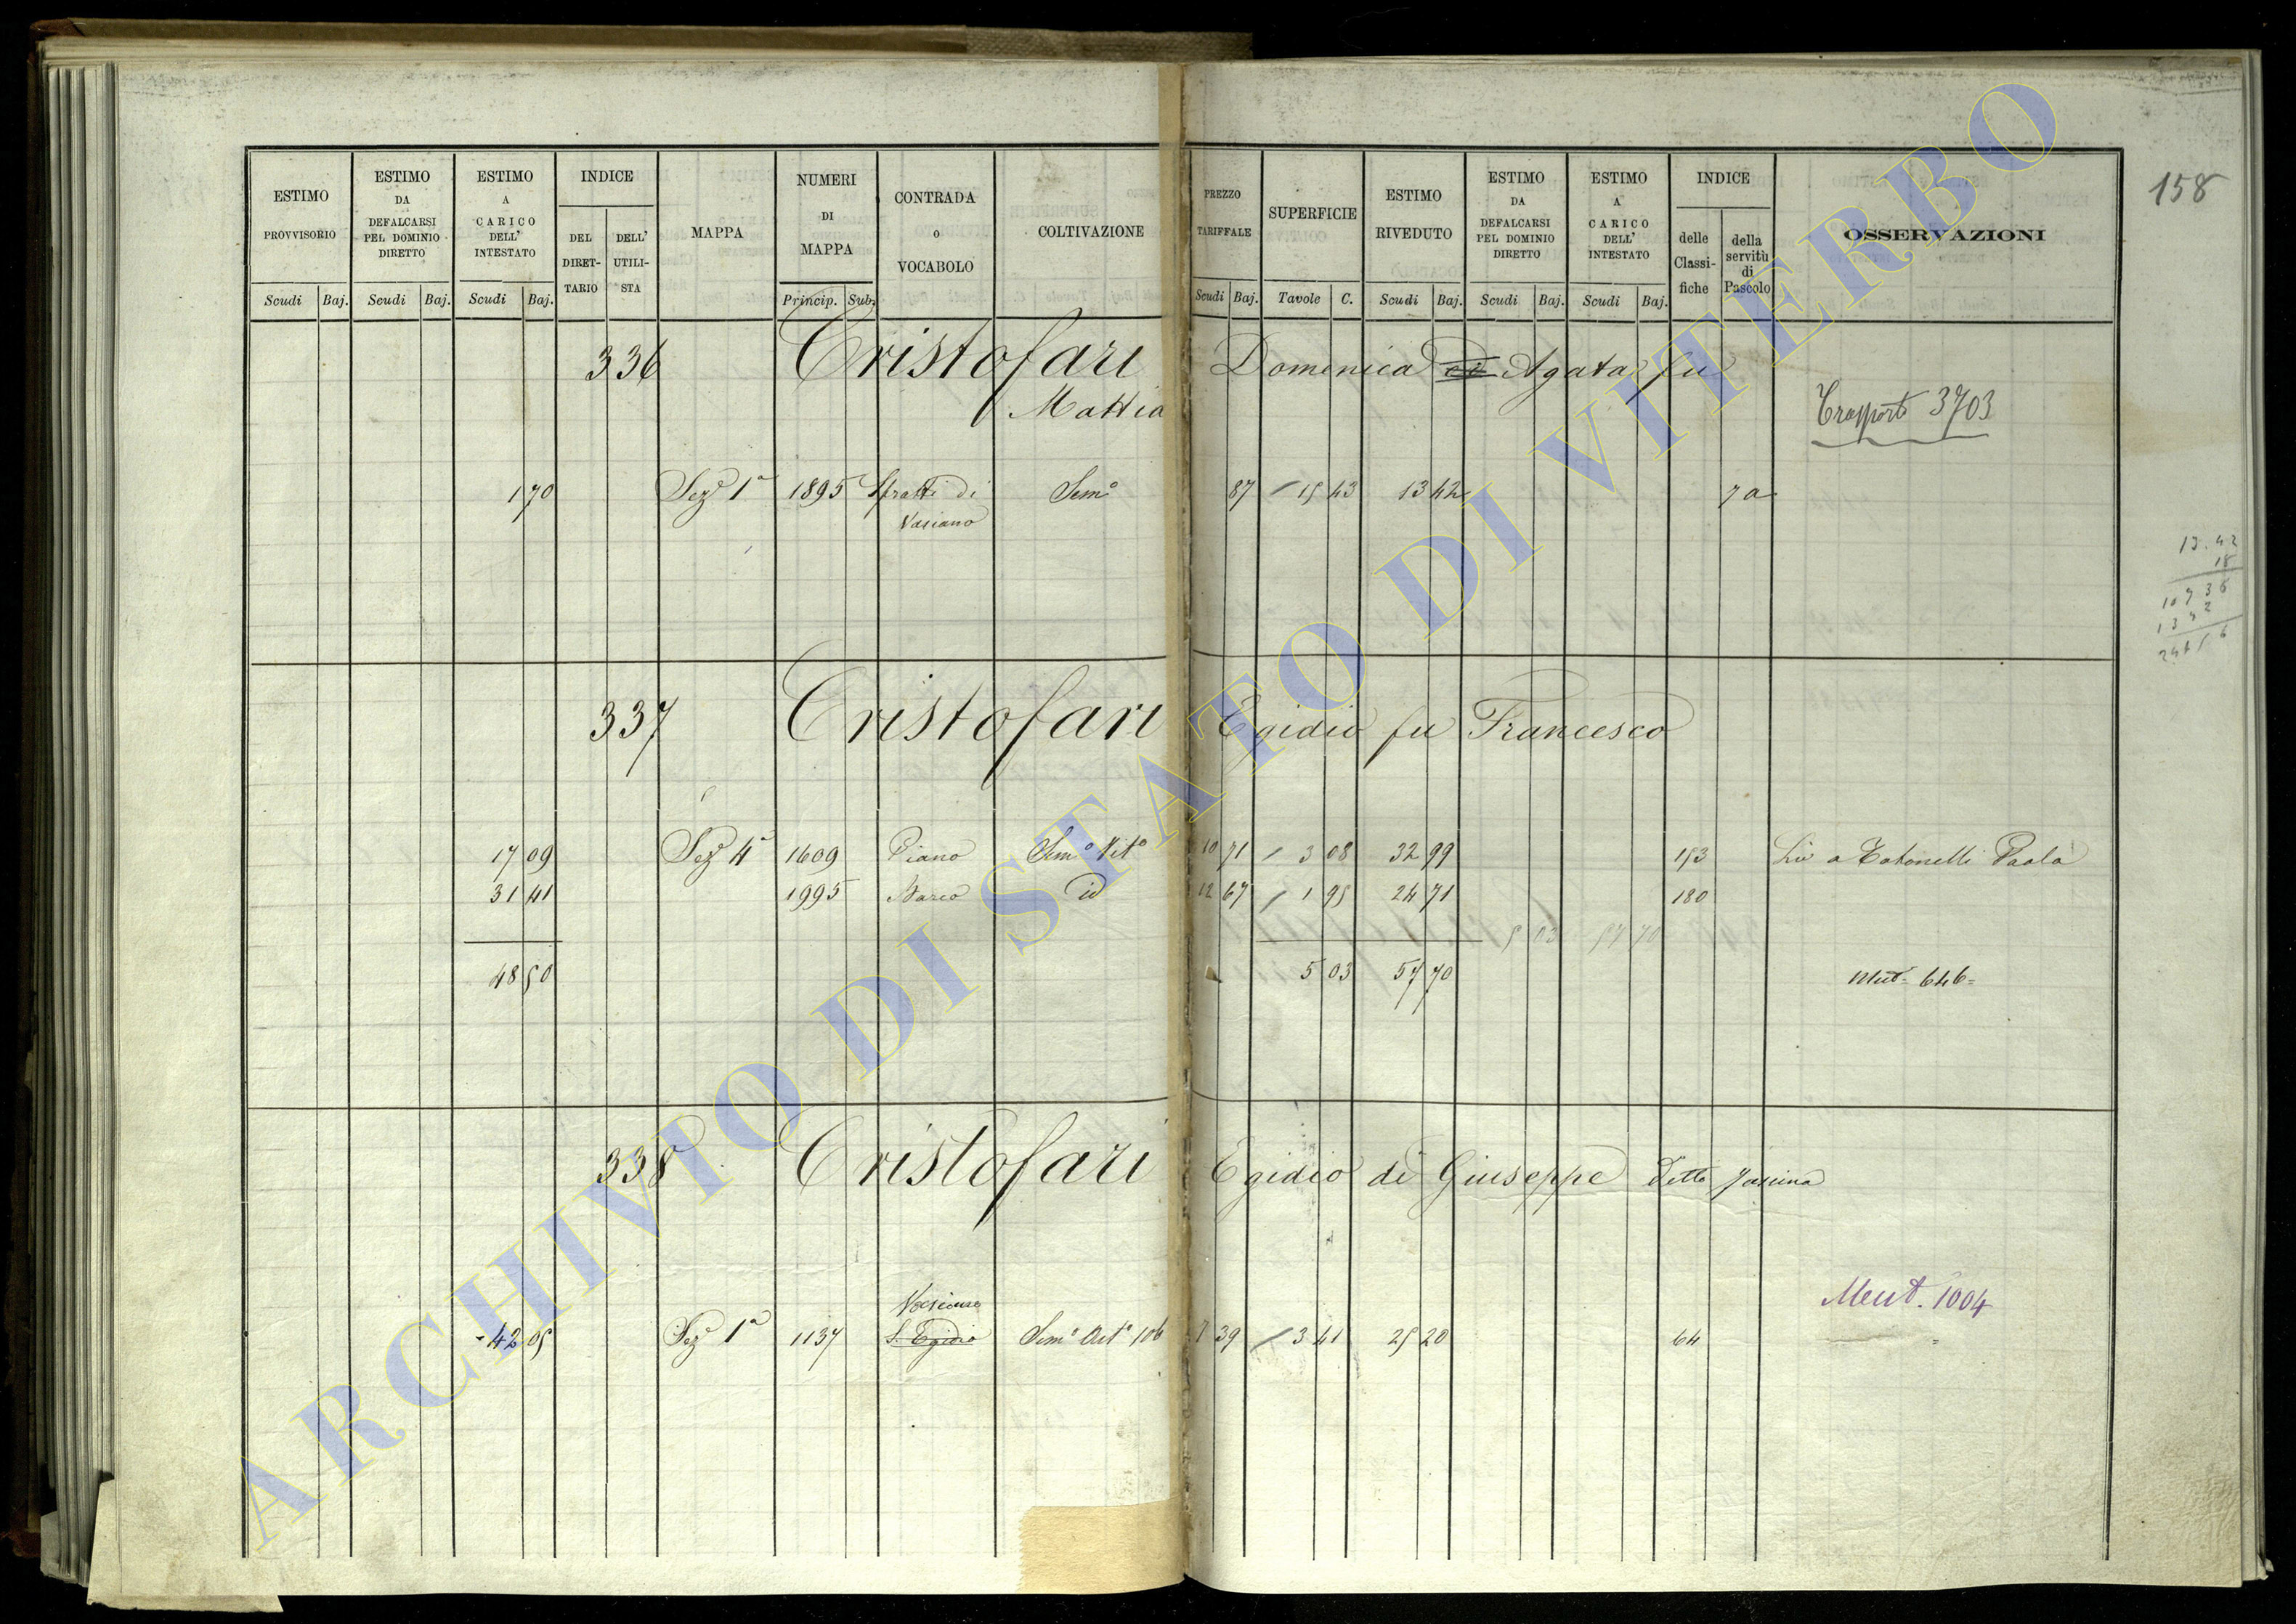 158
ESTIMO PROVVISORIO Scudi Baj.
ESTIMO DA DEFALCARSI PEL DOMINIO DIRETTO Scudi Baj.
ESTIMO A CARICO DELL' INTESTATO Scudi Baj.
INDICE DEL DIRET- TARIO DELL' UTILI- STA
MAPPA
NUMERI DI MAPPA Princip. Sub.
CONTRADA o VOCABOLO
COLTIVAZIONE
PREZZO TARIFFALE Scudi Baj.
SUPERFICIE Tavole C.
ESTIMO RIVEDUTO Scudi Baj.
ESTIMO DA DEFALCARSI PEL DOMINIO DIRETTO Scudi Baj.
ESTIMO A CARICO DELL' INTESTATO Scudi Baj.
INDICE delle Classi- fiche della servitù di Pascolo
OSSERVAZIONI
336 Cristofari Domenica ed Agata fu
Mattia
Trasporto 3703
1 70 Sezе 1ª 1895 Sfratti di Semo 87 15 43 13 42 7a
Vasiano
13.42
18
10736
1342
24156
337 Cristofari Egidio fu Francesco
17 09 Seze 4ª 1609 Piano Semo Vito 10 71 3 08 32 99 153 Liv a Totonelli Paola
31 41 1995 Barco id 12 67 1 95 24 71 180
5 03 57 70
48 50 5 03 57 70 Mut. 646
338 Cristofari Egidio di Giuseppe detto
Mut. 1004
Vasiano
42 05 Seze 1ª 1137 S. Egidio Semo Oto 106 7 39 3 41 25 20 64
ARCHIVIO DI STATO DI VITERBO